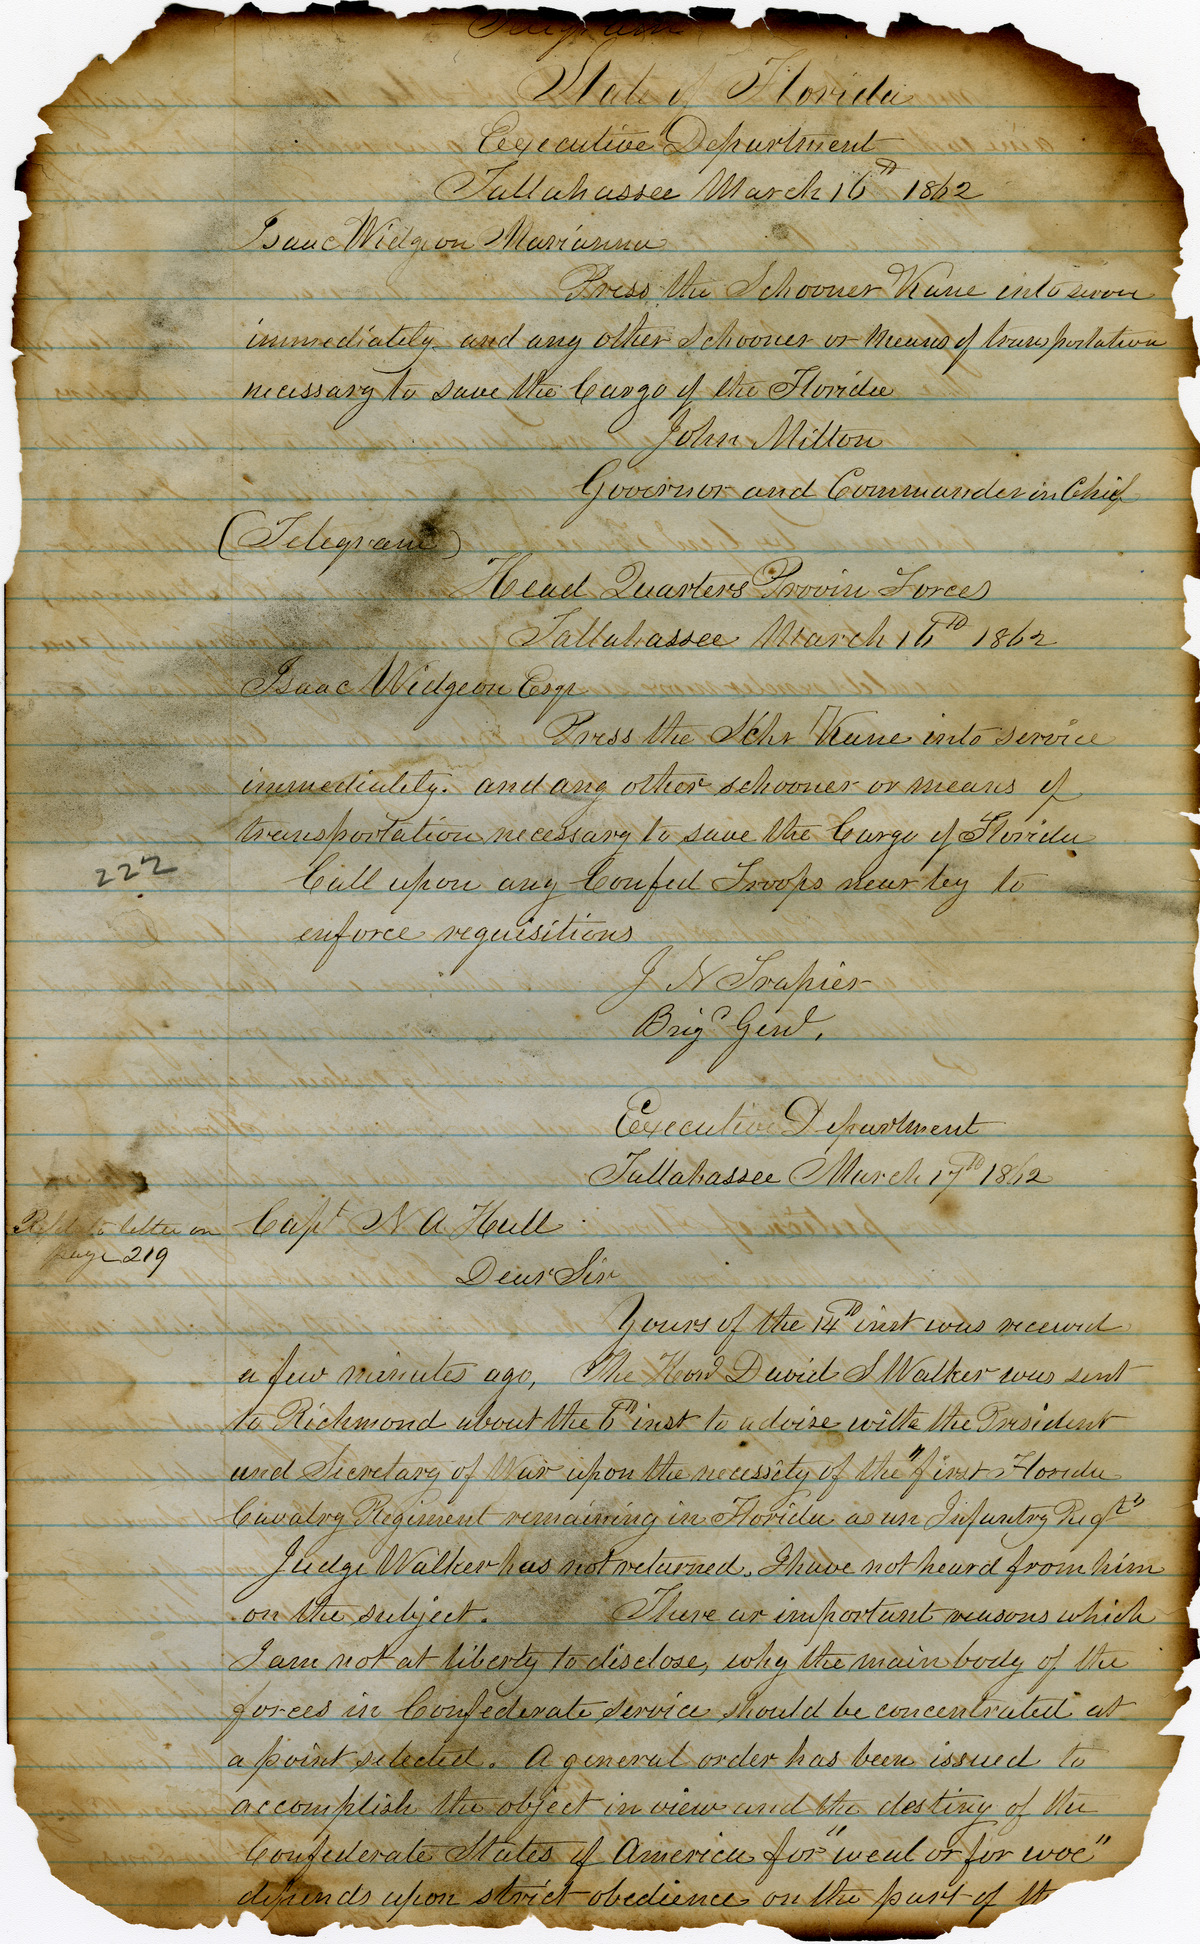 Telegram
State of Florida
Executive Department
Tallahassee March 16th 1862
Isaac Widgeon Marianna
Press the Schooner Kane into
immediately and any other Schooner or means of transportation
necessary to save the Cargo of the Florida
John Milton
Governor and Commander in Chief
(Telegram)
Head Quarters Provin Forces
Tallahassee March 16th 1862
Isaac Widgeon Esqr
Press the Schr Kane into service
immediately. and any other schooner or means of
transportation necessary to save the Cargo of Florida
Call upon any Confed Troops near by to
enforce requisitions
222
J N Trapier
Brig Genl,
Executive Department
Tallahassee March 17th 1862
Reply to letter on
page 219
Capt N A Hull
Dear Sir
Yours of the 14th inst was received
a few minutes ago, The Hon David S Walker was sent
to Richmond about the 6th inst to advise with the President
and Secretary of War upon the necessity of the "first Florida
Cavalry Regiment remaining in Florida as an Infantry Regt"
Judge Walker has not returned. I have not heard from him
on the subject. There ar important reasons which
I am not at liberty to disclose, why the main body of the
forces in Confederate service should be concentrated at
a point selected. A general order has been issued to
accomplish the object in view and the destiny of the
Confederate States of America for "weal or for woe"
depends upon strict obedience on the part of th